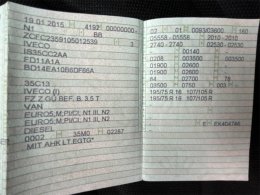 19.01.2015 4192 00000000
N1 BB
ZCFC2359105012539
IVECO
IS35CC2AA
FD11A1A
BD14EA10B6DF66A
35C13
IVECO (I)
FZ.Z.GÜ.BEF.B. 3,5 T
VAN
EURO5;M,PI/CI, N1 III, N2
EURO5;M,PI/CI, N1 III, N2
DIESEL
0002 35M0 02287
MIT AHK LT.EGTG*
02 01 0093/03600 160
05558 - 05558 2010 - 2010
2740 - 2740 02530 - 02530
00140
0208 003500 003500
01900 02600
01900 02600
64 02700 78
03500 0750
195/75 R 16 107/105 R
195/75 R 16 107/105 R
EK4D4786